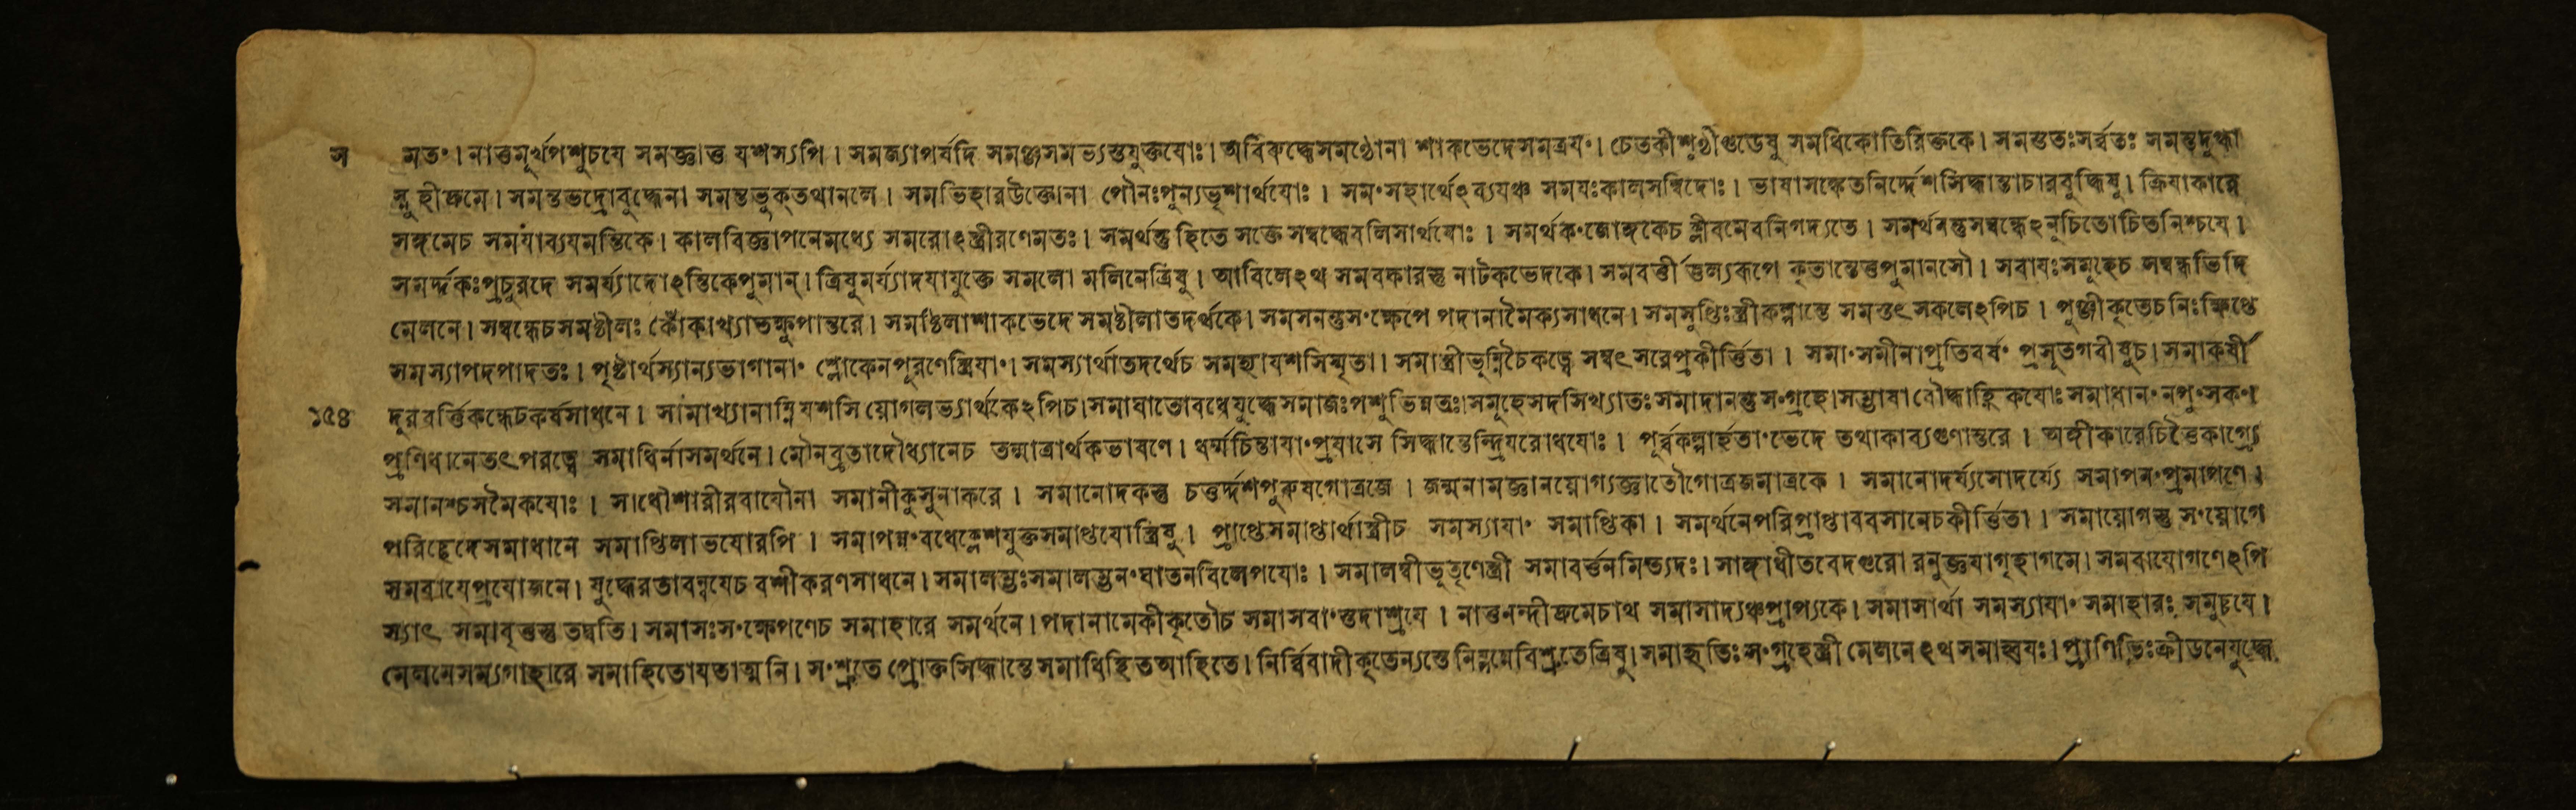 স মতং। নাত্তমূর্খপশুচযে সমজ্ঞাত্ত যশস্যপি। সমজ্যাপর্যদি সমঞ্জসমভ্যস্তযুক্তযোঃ। অবিরুদ্ধেসমণ্ঠোনা শাকভেদেসমত্রযং। চেতকীশুণ্ঠীগুডেষু সমধিকোতিরিক্তকে। সমন্ততঃসর্ব্বতঃ সমন্তদুগ্ধা
স্নুহীদ্রুমে। সমন্তভদ্রোবুদ্ধেনা সমন্তভুক্তথানলে। সমভিহারউক্তোনা পৌনঃপুন্যভৃশার্থযোঃ। সমংসহার্থেঽব্যযঞ্চ সমযঃকালসম্বিদোঃ। ভাষাসঙ্কেতনির্দ্দেশসিদ্ধান্তাচারবুদ্ধিষু। ক্রিযাকারে
সঙ্গমেচ সমযাব্যযমন্তিকে। কালবিজ্ঞাপনেমধ্যে সমরোঽস্ত্রীরণেমতঃ। সমর্থস্তু হিতে সক্তে সম্বদ্ধেবলিসার্থযোঃ। সমর্থকংজোঙ্গকেচ ক্লীবমেবনিগদ্যতে। সমর্থনন্তুসম্বন্ধেঽনুচিতোচিতনিশ্চযে।
সমর্দ্দকঃপ্রচুরদে সমর্য্যাদোঽন্তিকেপুমান্। ত্রিষুমর্য্যাদযাযুক্তে সমলো মলিনেত্রিষু। আবিলেঽথ সমবকারস্তু নাটকভেদকে। সমবর্ত্তী তুল্যরূপে কৃতান্তেতুপুমানসৌ। সবাযঃসমূহেচ সম্বন্ধভিদি
মেলনে। সম্বন্ধেচসমষ্ঠীলঃ কোঁকাখ্যাতক্ষুপান্তরে। সমষ্ঠিলাশাকভেদে সমষ্ঠীলাতদর্থকে। সমসনন্তুসংক্ষেপে পদানামৈক্যসাধনে। সমসুপ্তিঃস্ত্রীকল্পান্তে সমস্তৎ সকলেঽপিচ। পুঞ্জীকৃতেচনিঃক্ষিপ্তে
সমস্যাপদপাদতঃ। পৃষ্টার্থস্যান্যভাগানাং শ্লোকেনপূরণেস্ত্রিযাং। সমস্যার্থাতদর্থেচ সমহ্যাযশসিস্মৃতা। সমাস্ত্রীভূম্নিচৈকত্বে সম্বৎসরেপ্রকীর্ত্তিতা। সমাংসমীনাপ্রতিবর্ষং প্রসূতগবীষুচ। সমাকর্ষী
১৫৪ দূরবর্ত্তিকন্ধেচকর্ষসাধনে। সামাখ্যানাম্নিযশসি যোগলভ্যার্থকেঽপিচ। সমাঘাতোবধেযুদ্ধেসমাজঃপশুভিন্নত্রঃ। সমূহেসদসিখ্যাতঃসমাদানন্তুসংগ্রহে। সম্ভাষা বৌদ্ধাহ্নিকযোঃ সমাধানং নপুংসকং
প্রণিধানেতৎপরত্বে সমাধির্নাসমর্থনে। মৌনব্রতাদৌধ্যানেচ তন্মাত্রার্থকভাষণে। ধর্ম্মচিন্তাযাংপ্রযাসে সিদ্ধান্তেন্দ্রিযরোধযোঃ। পূর্ব্বকল্পার্হতাংভেদে তথাকাব্যগুণান্তরে। অঙ্গীকারেচিত্তৈকাগ্র্যে
সমানশ্চসমৈকযোঃ। সাধৌশারীরবাযৌনা সমানীকুসুনাকরে। সমানোদকস্তু চতুর্দ্দশপুরুষগোত্রজে। জন্মনামজ্ঞানযোগ্যজ্ঞাতৌগোত্রজমাত্রকে। সমানোদর্য্যসোদর্য্যে সমাপনংপ্রমাপণে।
পরিচ্ছেদেসমাধানে সমাপ্তিলাভযোরপি। সমাপন্নংবধেক্লেশযুক্তসমাপ্তযোস্ত্রিষু। প্রাপ্তেসমাপ্তার্থাস্ত্রীচ সমস্যাযাং সমাপ্তিকা। সমর্থনেপরিপ্রাপ্তাববসানেচকীর্ত্তিতা। সমাযোগস্তু সংযোগে
সমবাযেপ্রযোজনে। যুদ্ধেরতাবন্বযেচ বশীকরণসাধনে। সমালম্ভঃসমালম্ভনংঘাতনবিলেপযোঃ। সমালম্বীভূতৃণেস্ত্রী সমাবর্ত্তনমিত্যদঃ। সাঙ্গাধীতবেদগুরো রনুজ্ঞযাগৃহাগমে। সমবাযোগণেঽপি
স্যাৎ সমাবৃত্তস্তু তদ্বতি। সমাসঃসংক্ষেপণেচ সমাহারে সমর্থনে। পদানামেকীকৃতৌচ সমাসবাংস্তদাশ্রযে। নাতুনন্দীদ্রুমেচাথ সমাসাদ্যঞ্চপ্রাপ্যকে। সমাসার্থা সমস্যাযাং সমাহারঃ সমুচ্চযে।
মেলনেসম্যগাহারে সমাহিতোযতাত্মনি। সংশ্রুতে প্রোক্তসিদ্ধান্তে সমাধিস্থিতআহিতে। নির্ব্বিবাদীকৃতেন্যস্তে নিয়মেবিশ্রুতেত্রিষু। সমাহৃতিঃসংগ্রহেস্ত্রী মেলনেঽথ সমাহ্বযঃ। প্রাণিভিঃক্রীডনেযুদ্ধে